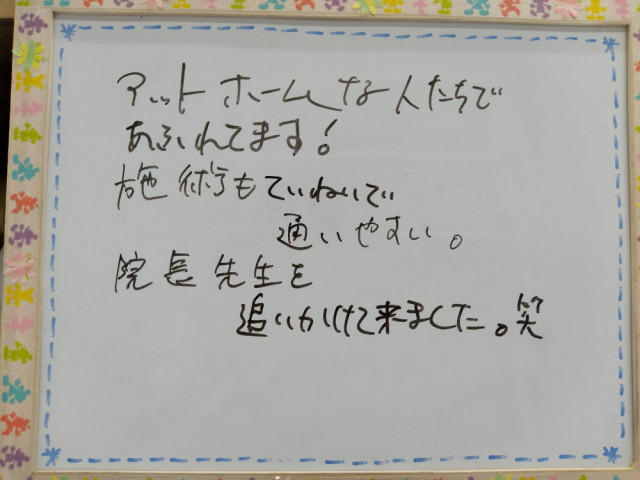 アットホームな人たちで
あふれてます！
施術もていねいで
通いやすい。
院長先生を
追いかけて来ました。笑